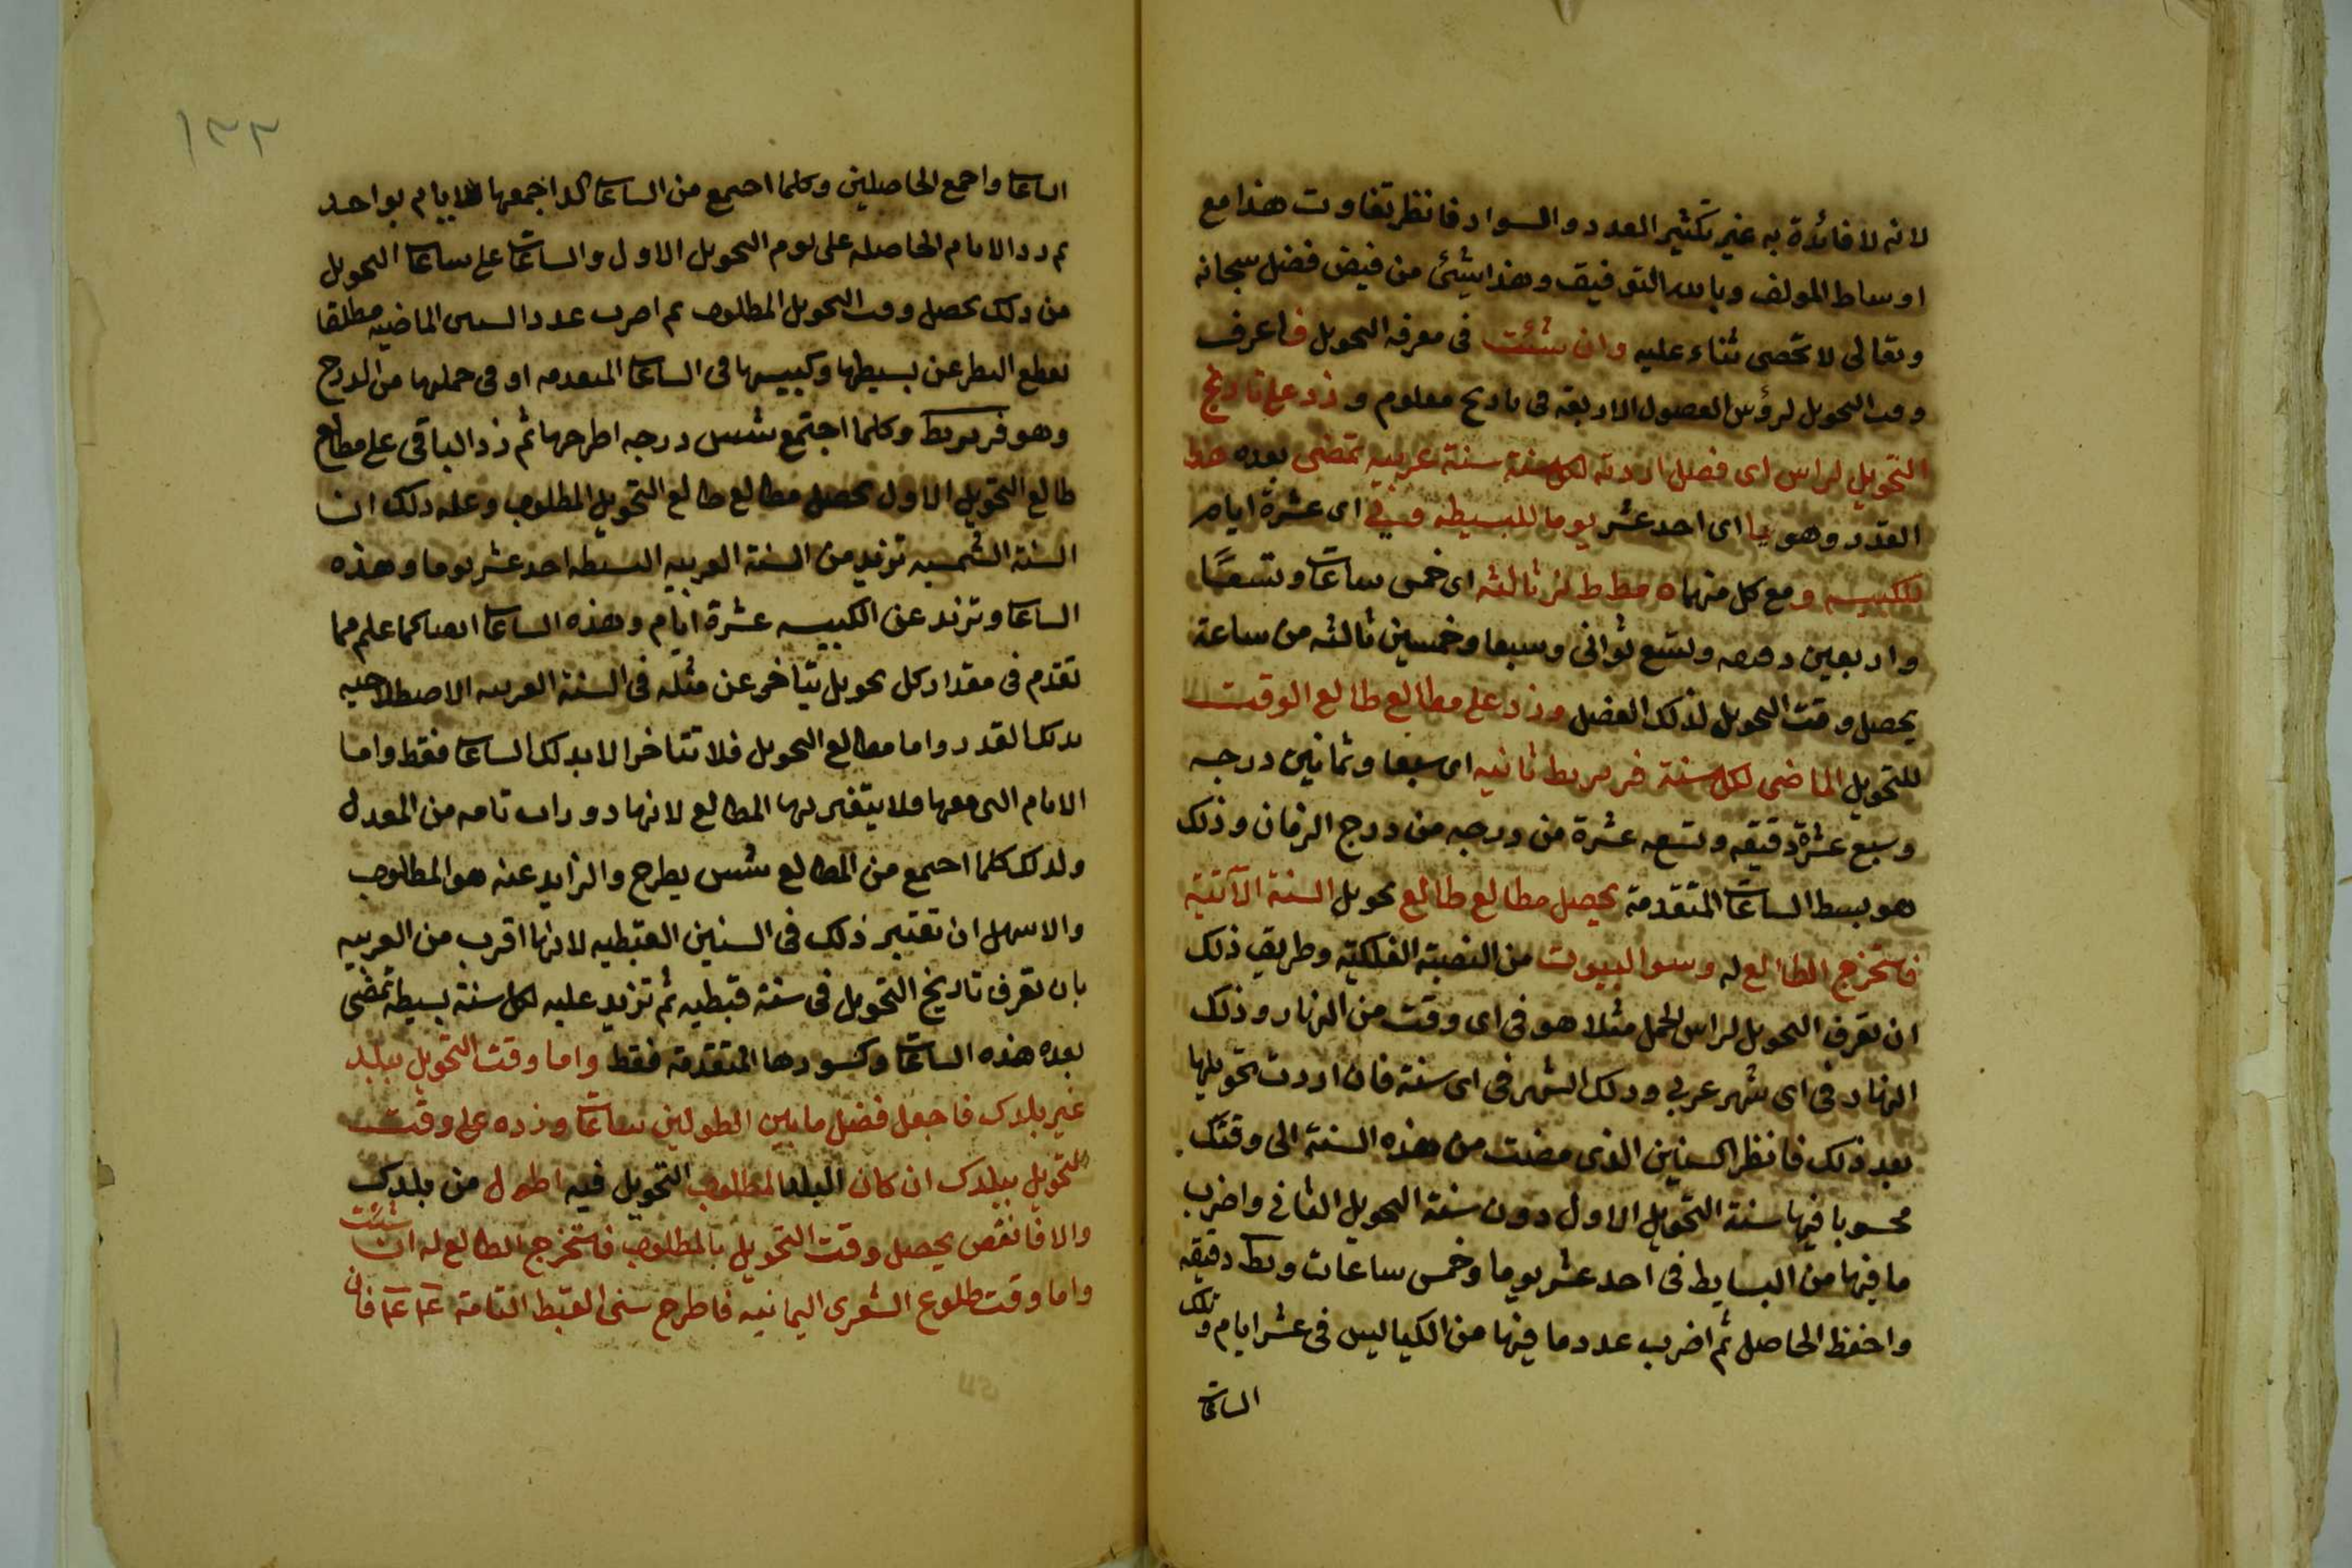 لانه لا فائدة به غير تكثير العدد والسواد فانظر تفاوت هذا مع
اوساط المولف وبالله التوفيق وهذا شئ من فيض فضل سبحانه
وتعالى لا تحصى ثناء عليه وان شئت فى معرفه التحويل فاعرف
وقت التحويل لرؤس الفصول الاربعة فى تاريخ معلوم وزد على تاريخ
التحويل لراس اى فصل اردته لكل سنة عربيه تمضى بعده هذا
القدر وهو يا اى احد عشر يوما للبسيطه وى اى عشرة ايام
للكبيسه ومع كل منهما ه مط ط نز ثالثه اى خمس ساعات وتسعًا
واربعين دقيقه وتسع ثوانى وسبعا وخمسين ثالثه من ساعة
يحصل وقت التحويل لذلك الفصل وزد على مطالع طالع الوقت
للتحويل الماضى لكل سنة فز يز يط ثانيه اى سبعا وثمانين درجه
وسبع عشرة دقيقه وتسعه عشرة من درجه من درج الزمان وذلك
هو بسط الساعات المتقدمة يحصل مطالع طالع تحويل السنة الآتية
فاستخرج الطالع له وسوا البيوت من النصبة الفلكية وطريق ذلك
ان تعرف التحويل لراس الحمل مثلا هو فى اى وقت من النهار وذلك
النهار فى اى شهر عربي وذلك الشهر فى اى سنة فان اردت تحويلها
بعد ذلك فانظر السنين الذى مضت من هذه السنة الى وقتك
محسوبا فيها سنة التحويل الاول دون سنة التحويل الثانى واضرب
ما فيها من البسايط فى احد عشر يوما وخمس ساعات ومط دقيقه
واحفظ الحاصل ثم اضرب عدد ما فيها من الكبايس فى عشر ايام وتلك
الساعات
١٣٣
الساعات واجمع الحاصلين وكلما اجتمع من الساعات كد اجمعها للايام بواحد
ثم زد الايام الحاصله على يوم التحويل الاول والساعات على ساعات التحويل
من ذلك يحصل وقت التحويل المطلوب ثم اضرب عدد السنين الماضيه مطلقا
بقطع النظر عن بسيطها وكبيسها فى الساعات المتقدمه او فى حملها من الدرج
وهو فز يز يط وكلما اجتمع شس درجه اطرحها ثم زد الباقى على مطالع
طالع التحويل الاول يحصل مطالع طالع التحويل المطلوب وعله ذلك ان
السنة الشمسيه تزيد من السنة العربيه البسيطه احد عشر يوما وهذه
الساعات وتزيد عن الكبيسه عشرة ايام وهذه الساعات ايضا كما علم مما
تقدم فى مقدار كل تحويل يتاخر عن مثله فى السنة العربيه الاصطلاحيه
بذلك القدر واما مطالع التحويل فلا تتاخر الا بذلك الساعات فقط واما
الايام التى معها فلا يتغير بها المطالع لانها دورات تامه من المعدل
ولذلك كلما اجتمع من المطالع شس يطرح والزايد عنه هو المطلوب
والاسهل ان تعتبر ذلك فى السنين القبطيه لانها اقرب من العربيه
بان تعرف تاريخ التحويل فى سنة قبطيه ثم تزيد عليه لكل سنة بسيطه تمضى
بعده هذه الساعات وكسورها المتقدمة فقط واما وقت التحويل ببلد
غير بلدك فاجعل فضل ما بين الطولين ساعات وزده على وقت
التحويل ببلدك ان كان البلد المطلوب التحويل فيه اطول من بلدك
والا فانقص يحصل وقت التحويل بالمطلوب فاستخرج الطالع له ان شئت
واما وقت طلوع الشعرى اليمانيه فاطرح سنى القبط التامة فان